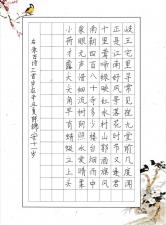 岐王宅里寻常见崔九堂前几度闻
正是江南好风景落花时节又逢君
千里莺啼绿映红水村山郭酒旗风
南朝四百八十寺多少楼台烟雨中
泉眼无声惜细流树阴照水爱晴柔
小荷才露尖尖角早有蜻蜓立上头
右录古诗三首岁在辛丑夏 十一岁